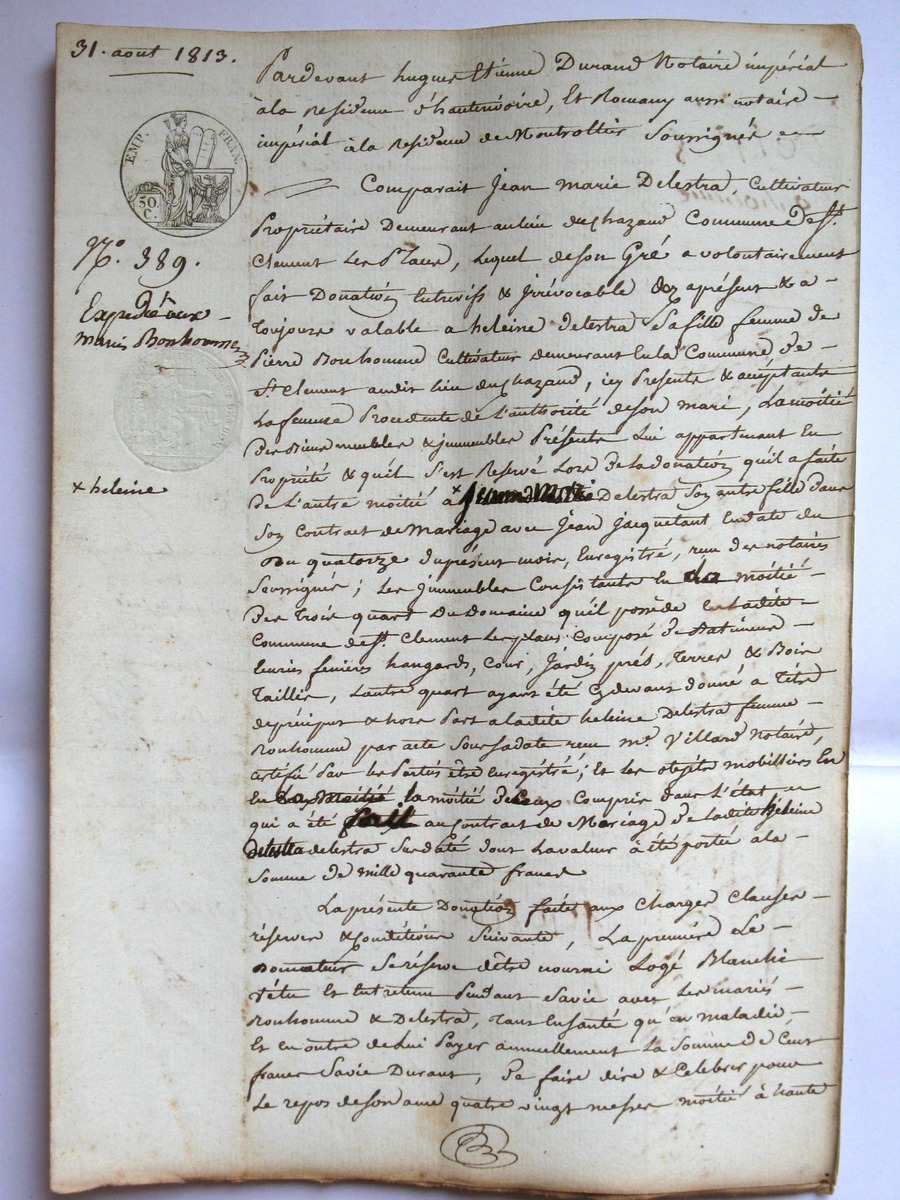 31. aout 1813.
EMP. FRAN.
50. C.
N.º 389.
Expedié aux
mariés Bonhomme
x heleine
Pardevant hugues Etienne Durand Notaire impérial
à la Residence d'hauterivoire, Et Romany aussi notaire
impérial à la Residence de Montrottier Soussignés
Comparait Jean marie Delestra, Cultivateur
Propriétaire Demeurant au lieu du chazaud Commune de St.
Clement Les Places, Lequel de son Gré a volontairement
fait Donation Entrevifs & irrévocable dez aprésent & a
Toujours valable a heleine Delestra Sa fille femme de
Pierre Bonhomme Cultivateur demeurant En la Commune de
St. Clement audit lieu du chazaud, icy Presente & acceptante
La femme Procedente de L'authorité de son mari, La moitié
Des Biens meubles & immeubles Présents Lui appartenant En
Propriété & qu'il S'est Reservé Lors de la donation qu'il a faite
De L'autre moitié à x Delestra Son autre fille Dans
Son Contrat de Mariage avec Jean Jacquetant En date du
Du quatorze du présent mois, Enregistré, reçu des notaires
Soussignés; Les immeubles Consistants En la moitié
Des Trois quart Du Domaine qu'il possède En ladite
Commune de St. Clement Les places Composé de Batiments
Ecuries fenières hangards, Cour, Jardin prés, Terres & Bois
Taillis, L'autre quart ayant été Cy devant donné a Titre
de préciput & hors Part a ladite heleine Delestra femme
Bonhomme par acte Sous Sa date reçu me. Villard Notaire,
certifié Par les Parties être Enregistré; Et les objets mobilliers En
En la moitié la moitié de Ceux Compris Dans L'état
qui a été fait au Contrat de Mariage de Ladite héleine
Delestra delestra Susdaté dont La valeur à été portée à la
Somme de mille quarante francs
La présente Donation faite aux Charges Clauses
réserves & Conditions Suivante, La première Le
Donnateur Se réserve d'être nourri Logé Blanchi
Vêtu Et Entretenu Pendant Sa vie avec Les mariés
Bonhomme & Delestra, Tant En Santé qu'en maladie,
Et en outre de Lui Payer annuellement La Somme de Cent
francs Sa vie Durant, De faire dire & Celebrer pour
Le repos de son ame quatre vingt messes moitié à haute